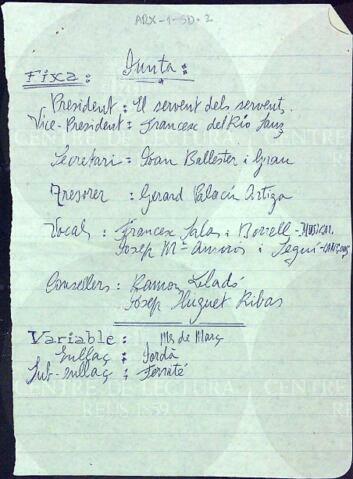 ARX-1-SD-2
Junta:
Fixa:
President: El servent dels servents.
Vice-President: Francesc del Río Sanz
Secretari: Joan Ballester i Grau
Tresorer: Gerard Palacín Artiga
Vocals: Francesc Salas i Morell-
Josep Mª Amorós i Seguí-
Consellers: Ramon
Josep Huguet Ribas
Variable: Ms de Març
Enllaç: Jordà
Sub-enllaç: Ferraté
CENTRE DE LECTURA
REUS 1859